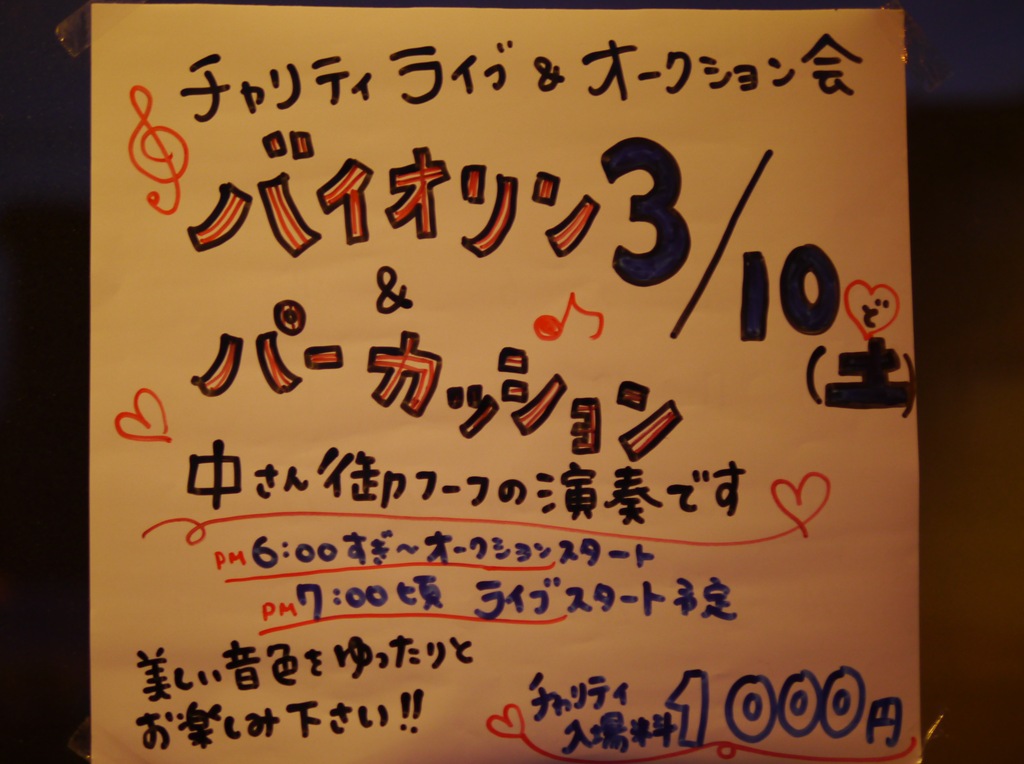 チャリティライブ & オークション会
バイオリン
&
パーカッション
3/10
ど
(土)
中さん御フーフの演奏です
PM 6:00すぎ～オークションスタート
PM 7:00頃 ライブスタート予定
美しい音色をゆったりと
お楽しみ下さい!!
チャリティ
入場料 1000円